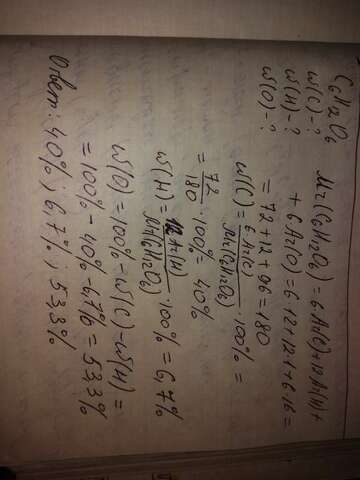 C6H12O6
W(C)-?
W(H)-?
W(O)-?
Mr(C6H12O6)=6Ar(C)+12Ar(H)+
+6Ar(O)=6·12+12·1+6·16=
=72+12+96=180
W(C)=6Ar(C)/Mr(C6H12O6)·100%=
=72/180·100%=40%
W(H)=12Ar(H)/Mr(C6H12O6)·100%=6,7%
W(O)=100%-W(C)-W(H)=
=100%-40%-6,7%=53,3%
Ответ: 40%; 6,7%; 53,3%